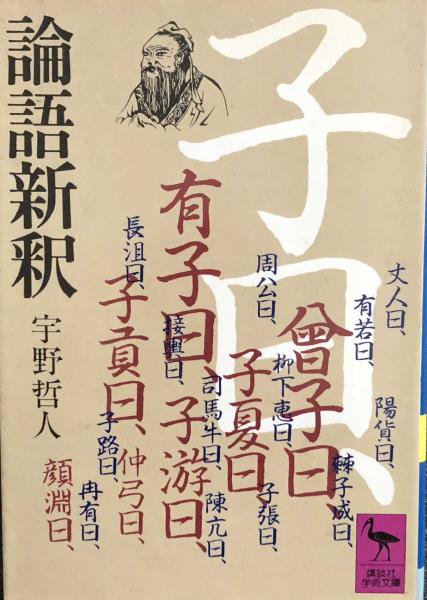 論語新釈
宇野哲人
子曰、
丈人曰、
有若曰、
陽貨曰、
周公曰、
曾子曰、
棘子成曰、
柳下恵曰、
子夏曰、
子張曰、
有子曰、
子游曰、
司馬牛曰、
陳亢曰、
接輿曰、
長沮曰、
子貢曰、
仲弓曰、
子路曰、
冉有曰、
顔淵曰、
講談社
学術文庫